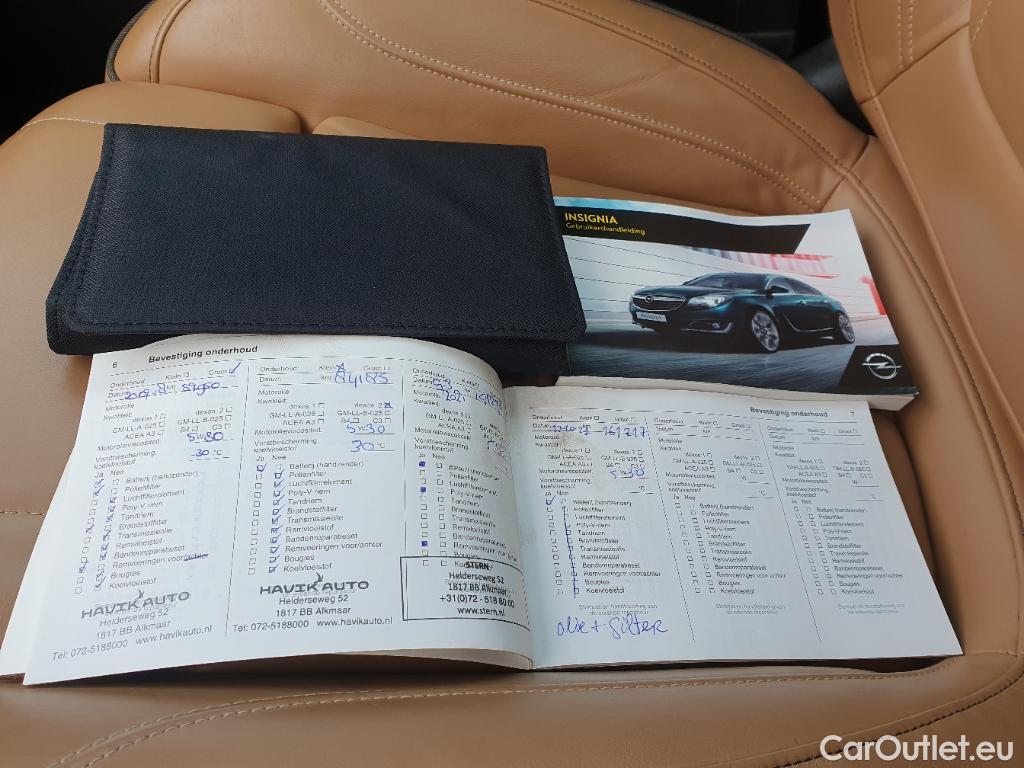 INSIGNIA
Gebruikershandleiding
INSIGNIA
6 Bevestiging onderhoud
Onderhoud: Klein ☐ Groot
Datum km 59950
Motorolie
Kwaliteit:
dexos 1 ☐ dexos 2 ☐
GM-LL-A-025 ☐ GM-LL-B-025 ☐
ACEA A3 ☐ B4 ☐ C3 ☐
Motorolieviscositeit 5 W 30
Vorstbescherming
koelvloeistof -30 °C
Ja Nee
Batterij (handzender)
Pollenfilter
Luchtfilterelement
Poly-V-riem
Tandriem
Brandstoffilter
Transmissieolie
Remvloeistof
Bandenreparatieset
Remvoeringen voor/achter
Bougies
Koelvloeistof
HAVIK AUTO
Helderseweg 52
1817 BB Alkmaar
Tel: 072-5188000 www.havikauto.nl
Onderhoud: Klein Groot
Datum km 84185
Motorolie
Kwaliteit:
dexos 1 ☐ dexos 2
GM-LL-A-025 ☐ GM-LL-B-025 ☐
ACEA A3 ☐ B4 ☐ C3 ☐
Motorolieviscositeit 5 W 30
Vorstbescherming
koelvloeistof 30 °C
Ja Nee
Batterij (handzender)
Pollenfilter
Luchtfilterelement
Poly-V-riem
Tandriem
Brandstoffilter
Transmissieolie
Remvloeistof
Bandenreparatieset
Remvoeringen voor/achter
Bougies
Koelvloeistof
HAVIK AUTO
Helderseweg 52
1817 BB Alkmaar
Tel: 072-5188000 www.havikauto.nl
Onderhoud
Datum 2021
Motorolie
Kwaliteit:
dexos 1 ☐
GM-LL-A-025 ☐
ACEA A3 ☐
Motorolieviscositeit
Vorstbescherming
koelvloeistof
Ja Nee
Batterij
Pollenfilter
Luchtfilterelement
Poly-V-riem
Tandriem
Brandstoffilter
Transmissieolie
Remvloeistof
Bandenreparatieset
Remvoeringen
Bougies
STERN
Helderseweg 52
1817 BB Alkmaar
+31(0)72 - 518 80 00
www.stern.nl
Bevestiging onderhoud 7
Onderhoud Klein ☐ Groot ☐
Datum 161717
Motorolie
Kwaliteit
dexos 1 ☐ dexos 2 ☐
GM-LL-A-025 ☐ GM-LL-B-025 ☐
ACEA A3 ☐ B4 ☐ C3 ☐
Motorolieviscositeit 5 W 30
Vorstbescherming,
koelvloeistof °C
Ja Nee
Batterij (handzender)
Pollenfilter
Luchtfilterelement
Poly-V-riem
Tandriem
Brandstoffilter
Transmissieolie
Remvloeistof
Bandenreparatieset
Remvoeringen voor/achter
Bougies
Koelvloeistof
olie + filter
Onderhoud Klein ☐ Groot ☐
Datum km
Motorolie
Kwaliteit
dexos 1 ☐ dexos 2 ☐
GM-LL-A-025 ☐ GM-LL-B-025 ☐
ACEA A3 ☐ B4 ☐ C3 ☐
Motorolieviscositeit W
Vorstbescherming,
koelvloeistof °C
Ja Nee
Batterij (handzender)
Pollenfilter
Luchtfilterelement
Poly-V-riem
Tandriem
Brandstoffilter
Transmissieolie
Remvloeistof
Bandenreparatieset
Remvoeringen voor/achter
Bougies
Koelvloeistof
Onderhoud: Klein ☐ Groot ☐
Datum km
Motorolie
Kwaliteit
dexos 1 ☐ dexos 2 ☐
GM-LL-A-025 ☐ GM-LL-B-025 ☐
ACEA A3 ☐ B4 ☐ C3 ☐
Motorolieviscositeit W
Vorstbescherming,
koelvloeistof °C
Ja Nee
Batterij (handzender)
Pollenfilter
Luchtfilterelement
Poly-V-riem
Tandriem
Brandstoffilter
Transmissieolie
Remvloeistof
Bandenreparatieset
Remvoeringen voor/achter
Bougies
Koelvloeistof
CarOutlet.eu